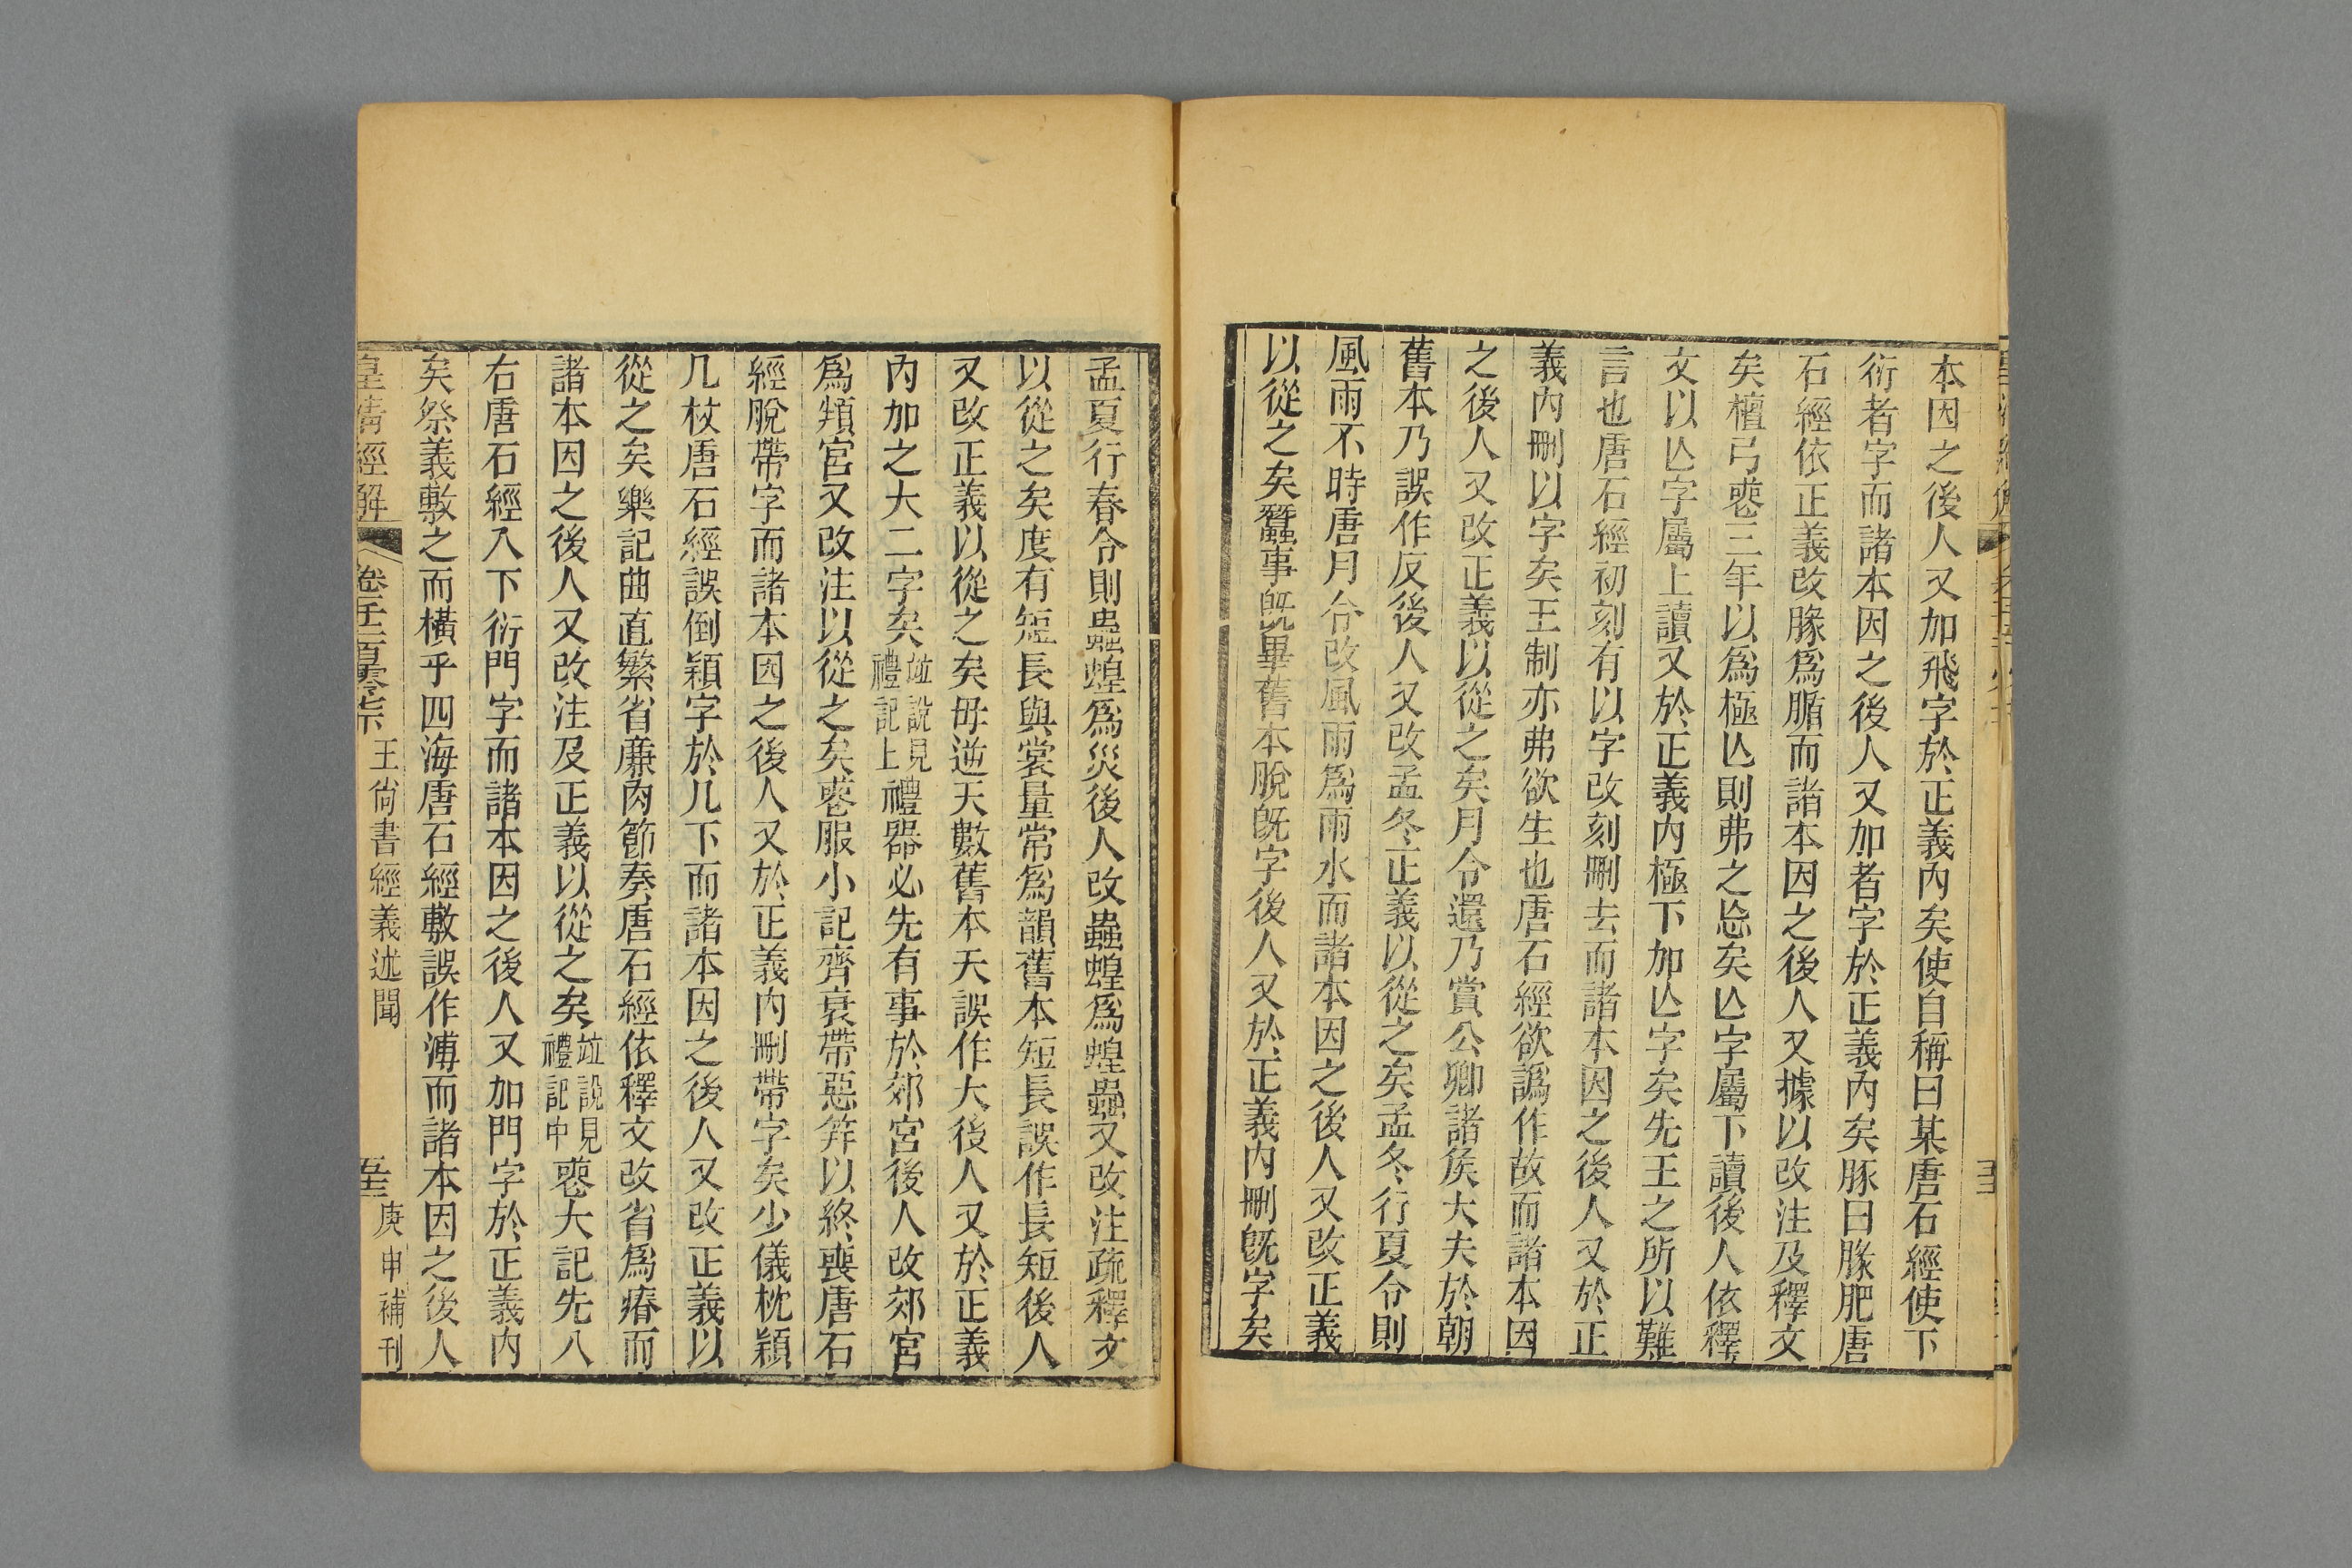 本因之後人又加飛字於正義內矣使自稱曰某唐石經使下
衍者字而諸本因之後人又加者字於正義內矣豚曰腞肥唐
石經依正義改腞爲腯而諸本因之後人又據以改注及釋文
矣檀弓喪三年以爲極亾則弗之忘矣亾字屬下讀後人依釋
文以亾字屬上讀又於正義內極下加亾字矣先王之所以難
言也唐石經初刻有以字改刻刪去而諸本因之後人又於正
義內刪以字矣王制亦弗欲生也唐石經欲譌作故而諸本因
之後人又改正義以從之矣月令還乃賞公卿諸矦大夫於朝
舊本乃誤作反後人又改孟冬正義以從之矣孟冬行夏令則
風雨不時唐月令改風雨爲雨水而諸本因之後人又改正義
以從之矣蠶事旣畢舊本脫旣字後人又於正義內刪旣字矣
孟夏行春令則蟲蝗爲災後人改蟲蝗爲蝗蟲又改注疏釋文
以從之矣度有短長與裳量常爲韻舊本短長誤作長短後人
又改正義以從之矣毋逆天數舊本天誤作大後人又於正義
內加之大二字矣竝說見禮記上禮器必先有事於郊宮後人改郊宮
爲頖宮又改注以從之矣喪服小記齊衰帶惡笄以終喪唐石
經脫帶字而諸本因之後人又於正義內刪帶字矣少儀枕穎
几杖唐石經誤倒穎字於几下而諸本因之後人又改正義以
從之矣樂記曲直繁省廉肉節奏唐石經依釋文改省爲瘠而
諸本因之後人又改注及正義以從之矣竝說見禮記中喪大記先入
右唐石經入下衍門字而諸本因之後人又加門字於正義內
矣祭義敷之而橫乎四海唐石經敷誤作溥而諸本因之後人
皇清經解 卷千二百零七下 王尙書經義述聞 五三 庚申補刊